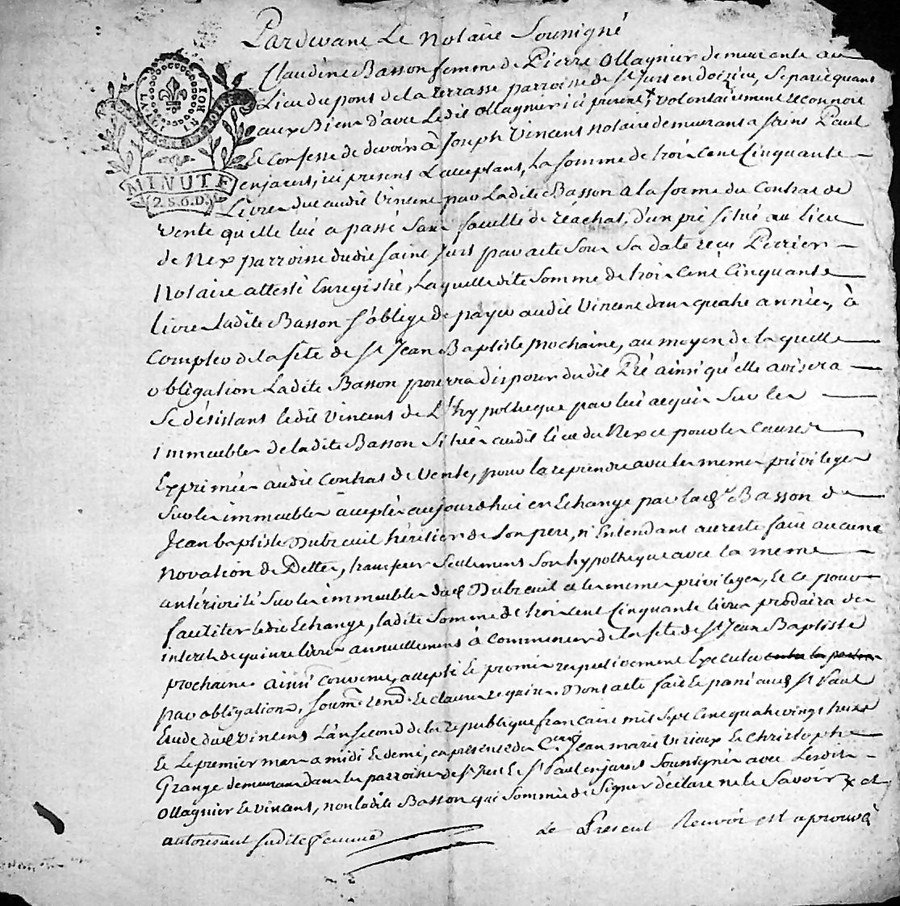 Pardevant Le Notaire Soussigné
Claudine Basson femme de Pierre Ollagnier demeurante au
Lieu du pons de la terrasse parroisse de St Just en doizieu, Separée quant
aux Biens d'avec Ledit Ollagnier ici présent x, volontairement reconnoit
Et confesse de devoir à Joseph Vincent notaire demeurant a Saint Paul
enjarest, ici present & acceptant, La somme de trois Cent Cinquante
MINUTE
2.S.6.D.
Livres due audit Vincent par Ladite Basson a la forme du Contrat de
vente qu'elle lui a passé sans faculté de reachat, d'un pré situé au lieu
de Nex parroisse dudit Saint Just par acte sous sa date reçu Perrier
Notaire attesté Enregistré, Laquelle dite Somme de trois Cent Cinquante
livres ladite Basson s'oblige de payer audit Vincent dans quatre années, à
Compter de la fête de St Jean Baptiste prochaine, au moyen de laquelle
obligation Ladite Basson pourra disposer dudit Pré ainsi qu'elle avisera
Se désistant ledit Vincent de L'hypotheque par lui acquis Sur les
immeubles de ladite Basson Situés audit lieu du Nex et pour les Causes
Exprimées audit Contrat de Vente, pour la reprendre avec les memes privileges
Sur les immeubles acceptés aujourdhui en Echange par lad. Basson de
Jean baptiste Dubreuil héritier de Son pere, n'Entendant au reste faire aucune
novation de Dette, transferer Seulement Son hypotheque avec la meme
antériorité Sur les immeubles dud. Dubreuil et les memes privileges, Et ce pour
faciliter ledit Echange, ladite Somme de trois cent Cinquante livres produira de
interet de quinze livres annuellement à commencer de la fête de St Jean Baptiste
prochaine ainsi convenu, accepté Et promis respectivement Executer
par obligation, soumon. renon. Et clauses requises. Dont acte fait et passé aud. St Paul
Etude dud. Vincent L'an Second de la republique francaise mil Sept Cent quatre vingt treize
Et Le premier mars a midi Et demi, en présence des Cens. Jean marie Virieux Et Christophe
Grange demeurant dans les parroisses de St Just Et St Paul enjarest Soussignés avec Lesdits
Ollagnier Et Vincent, non ladite Basson qui Sommée de Signer déclare ne le Savoir x et
autorisant sadite femme
Le Present Renvoi est aprouvé